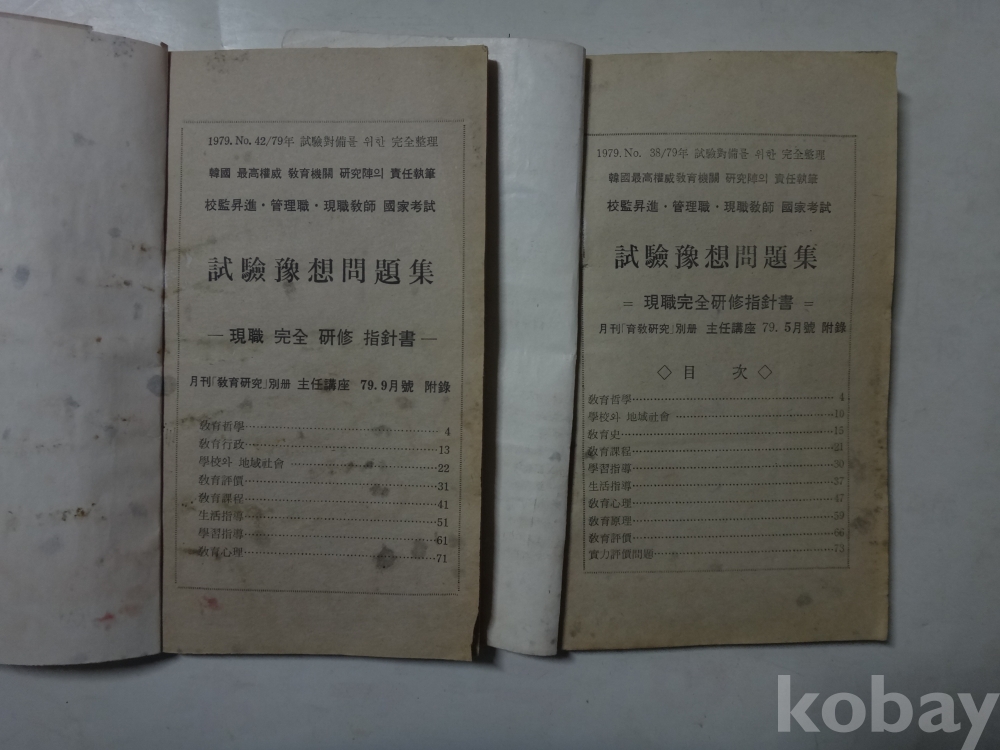 1979. No. 42/79年 試驗對備를 위한 完全整理
韓國 最高權威 敎育機關 硏究陣의 責任執筆
校監昇進・管理職・現職敎師 國家考試
試驗豫想問題集
— 現職 完全 硏修 指針書 —
月刊「敎育硏究」別册 主任講座 79. 9月號 附錄
敎育哲學 4
敎育行政 13
學校와 地域社會 22
敎育評價 31
敎育課程 41
生活指導 51
學習指導 61
敎育心理 71
1979. No. 38/79年 試驗對備를 위한 完全整理
韓國最高權威敎育機關 硏究陣의 責任執筆
校監昇進・管理職・現職敎師 國家考試
試驗豫想問題集
= 現職完全硏修指針書 =
月刊「育敎硏究」別册 主任講座 79. 5月號 附錄
◇ 目 次 ◇
敎育哲學 4
學校와 地域社會 10
敎育史 15
敎育課程 21
學習指導 30
生活指導 37
敎育心理 47
敎育原理 59
敎育評價 66
實力評價問題 73
kobay